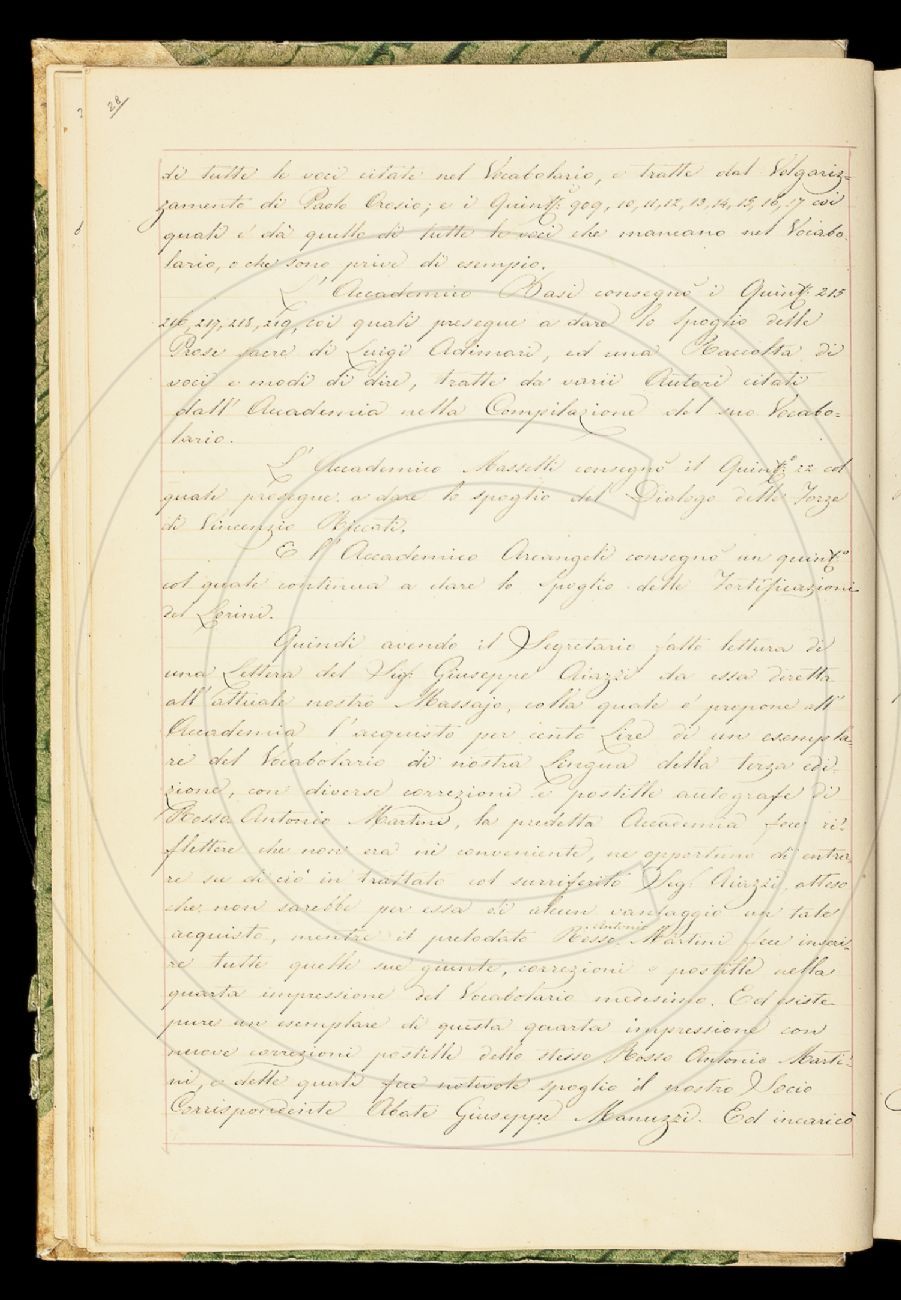 28
di tutte le voci citate nel Vocabolario, e tratte dal Volgariz=
zamento di Paolo Orosio; e i Quint.i 909, 10, 11, 12, 13, 14, 15, 16, 17 coi
quali é dà quelle di tutte le voci che mancano nel Vocabo-
lario, o che sono prive di esempio.
L'Accademico Basi consegnò i Quint.i 215
216, 217, 218, 219, coi quali prosegue a dare lo spoglio delle
Prose sacre di Luigi Adimari, ed una Raccolta di
voci e modi di dire, tratte da varii Autori citati
dall'Accademia nella Compilazione del suo Vocabo=
lario.
L'Accademico Masselli consegnò il Quint.o 22 col
quale prosegue a dare lo spoglio del Dialogo delle Forze
di Vincenzio Riccati.
E l'Accademico Arcangeli consegnò un quint.o
col quale continua a dare lo spoglio delle Fortificazioni
del Lorini.
Quindi avendo il Segretario fatto lettura di
una Lettera del Sig.r Giuseppe Aiazzi da essa diretta
all'attuale nostro Massajo, colla quale é propone all'
Accademia l'acquisto per cento Lire di un esempla-
re del Vocabolario di nostra Lingua della terza edi-
zione, con diverse correzioni e postille autografe di
Rosso Antonio Martini, la predetta Accademia fece ri-
flettere che non era nè conveniente, ne opportuno di entra-
re su di ciò in trattato col surriferito Sig.r Aiazzi, atteso
che non sarebbe per essa di alcun vantaggio un tale
acquisto, mentre il prelodato Rosso Antonio Martini fece inseri-
re tutte quelle sue giunte, correzioni e postille nella
quarta impressione del Vocabolario medesimo. Ed esiste
pure un esemplare di questa quarta impressione con
nuove correzioni postille dello stesso Rosso Antonio Marti-
ni, e delle quali fece notevole spoglio il nostro Socio
Corrispondente Abate Giuseppe Manuzzi. Ed incaricò